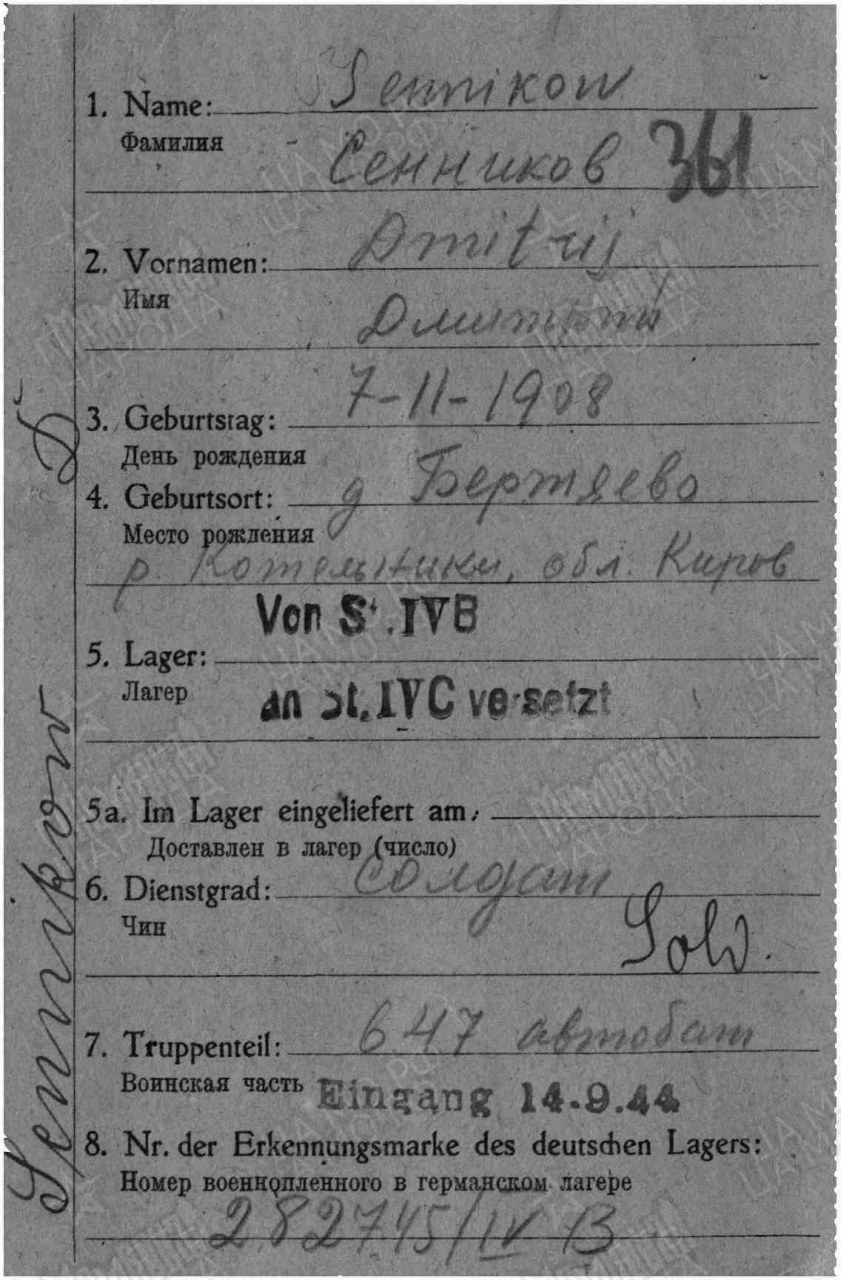 1. Name: Sennikow
Фамилия - Сенников 361
2. Vornamen: Dmitrij
Имя Дмитрий
3. Geburtstag: 7-11-1908
День рождения
4. Geburtsort: д Бертяево
Место рождения
р. Котельники, обл. Киров
Von St. IVB
5. Lager:
Лагер an St. IVC versetzt
5a. Im Lager eingeliefert am:
Доставлен в лагер (число)
6. Dienstgrad: солдат
Чин Sold.
7. Truppenteil: 647 автобат
Воинская часть Eingang 14.9.44
8. Nr. der Erkennungsmarke des deutschen Lagers:
Номер военнопленного в германском лагере
282745/IV B
Sennikow D